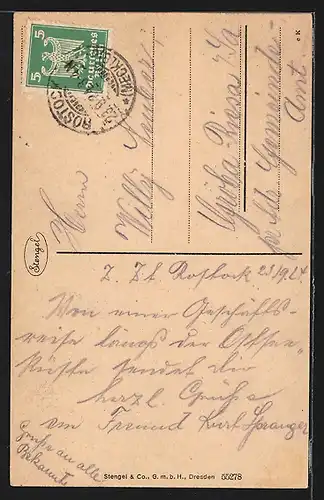 5 5
Deutsches Reich
ROSTOCK
(MECKL)
Herrn
Willy
Gröba-Riesa a/E
Gemeinde-
Amt.
Stengel
z. Zt. Rostock 23/9.24
Von einer Geschäfts-
reise längs der Ostsee-
küste sendet dir
herzl. Grüße
dein Freund Kurt Spranger
Grüße an alle
Bekannte
Stengel & Co., G. m. b. H., Dresden 55278